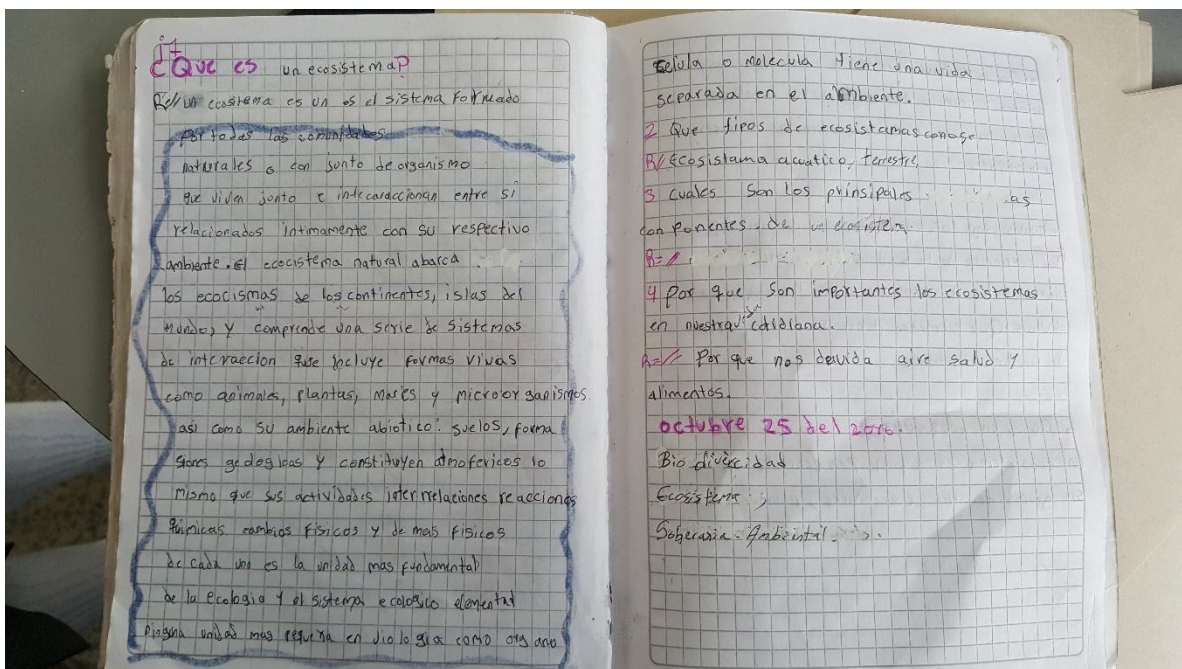 1+
¿Que es un ecosistema?
R// un ecosistema es un es el sistema formado
por todas las comunidades
naturales o con junto de organismo
que viven junto e intecardccionan entre sí
relacionados intimamente con su respectivo
ambiente. El ecocistema natural abarca
los ecocismas de los continentes, islas del
mundo, y comprende una serie de sistemas
de interaccion que incluye formas vivas
como animales, plantas, mares y microorganismos
asi como su ambiente abiotico: suelos, forma
siones geologicas y constituyen atmofericos lo
mismo que sus actividades interrelaciones reacciones
quimicas cambios Físicos y de mas Fisicos
de cada uno es la unidad mas fundamental
de la ecologia y el sistema ecologico elemental
ninguna unidad mas pequeña en viologia como organo
celula o molecula tiene una vida
separada en el ambiente.
2 Que tipos de ecosistamas conose
R// Ecosistama acuatico, terrestre,
3 cuales son los prinsipales as
con ponentes de un ecosistema.
R=//
4 por que son importantes los ecosistemas
en nuestra cotidiana.
R=// Por que nos da vida aire salud y
alimentos.
octubre 25 del 2016.
Bio divercidad
Ecosistema
Soberania Ambiental